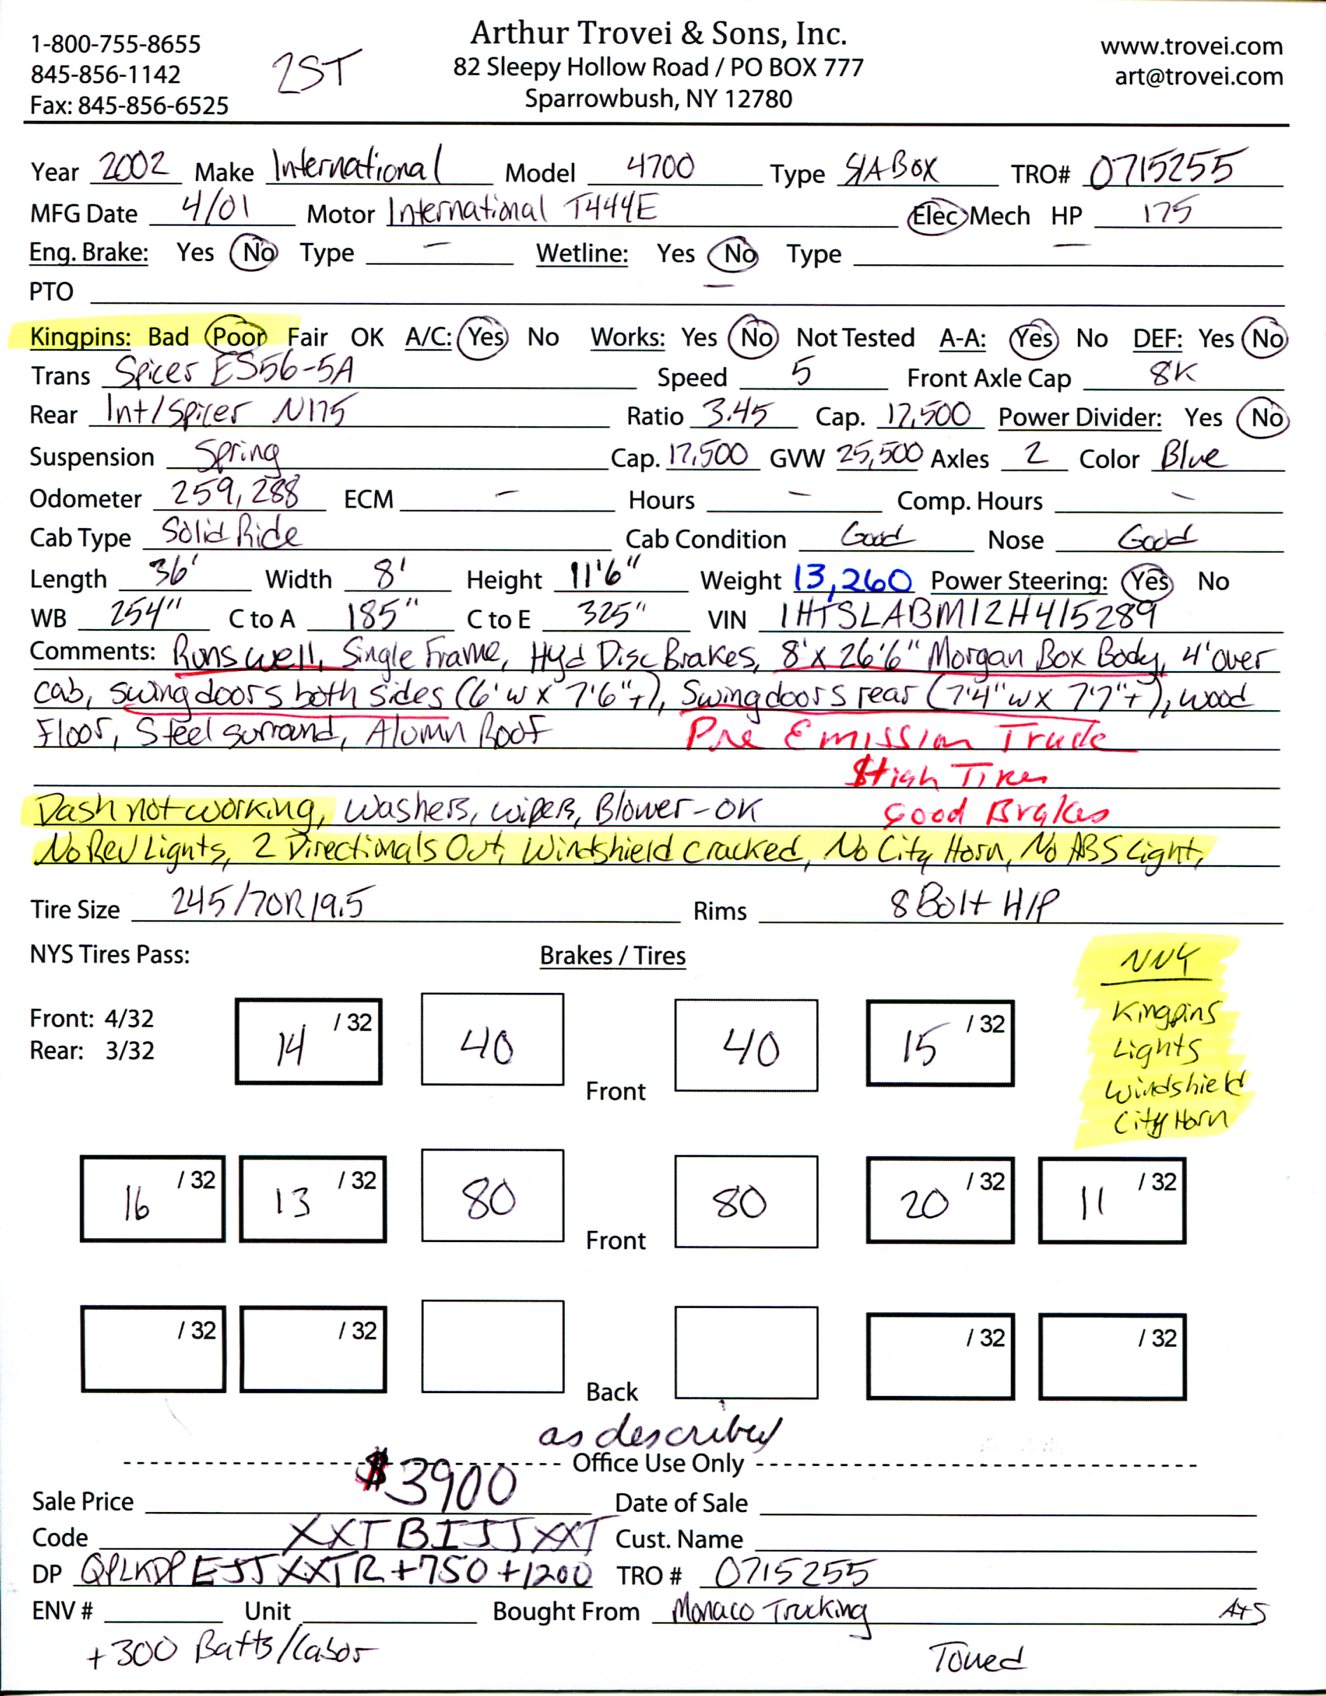 Arthur Trovei & Sons, Inc.
1-800-755-8655 82 Sleepy Hollow Road / PO BOX 777 www.trovei.com
845-856-1142 2ST Sparrowbush, NY 12780 art@trovei.com
Fax: 845-856-6525
Year 2002 Make International Model 4700 Type S/A Box TRO# 0715255
MFG Date 4/01 Motor International T444E Elec Mech HP 175
Eng. Brake: Yes No Type – Wetline: Yes No Type —
PTO —
Kingpins: Bad Poor Fair OK A/C: Yes No Works: Yes No Not Tested A-A: Yes No DEF: Yes No
Trans Spicer ES56-5A Speed 5 Front Axle Cap 8K
Rear Int/Spicer N175 Ratio 3.45 Cap. 17,500 Power Divider: Yes No
Suspension Spring Cap. 17,500 GVW 25,500 Axles 2 Color Blue
Odometer 259,288 ECM – Hours – Comp. Hours –
Cab Type Solid Ride Cab Condition Good Nose Good
Length 36' Width 8' Height 11'6" Weight 13,260 Power Steering: Yes No
WB 254" C to A 185" C to E 325" VIN 1HTSLABM12H415289
Comments: Runs well, Single Frame, Hyd Disc Brakes, 8' x 26'6" Morgan Box Body, 4' over
cab, swing doors both sides (6' w x 7'6"+), Swing doors rear (7'4" w x 7'7"+), wood
Floor, Steel surround, Alumn Roof Pre Emission Truck
$High Tires
Dash not working, Washers, Wipers, Blower-OK Good Brakes
No Rev Lights, 2 Directionals Out, Windshield Cracked, No City Horn, No ABS Light,
Tire Size 245/70R19.5 Rims 8 Bolt H/P
NYS Tires Pass: Brakes / Tires NNY
Front: 4/32 14 /32 40 Front 40 15 /32 Kingpins
Rear: 3/32 Lights
Windshield
City Horn
16 /32 13 /32 80 Front 80 20 /32 11 /32
/32 /32 Back /32 /32
as described
Office Use Only
Sale Price $3900 Date of Sale
Code XXTBIJJXXT Cust. Name
DP QPLKDPEJJXXTR+750+1200 TRO # 0715255
ENV # Unit Bought From Monaco Trucking A+S
+300 Batts/Labor Towed